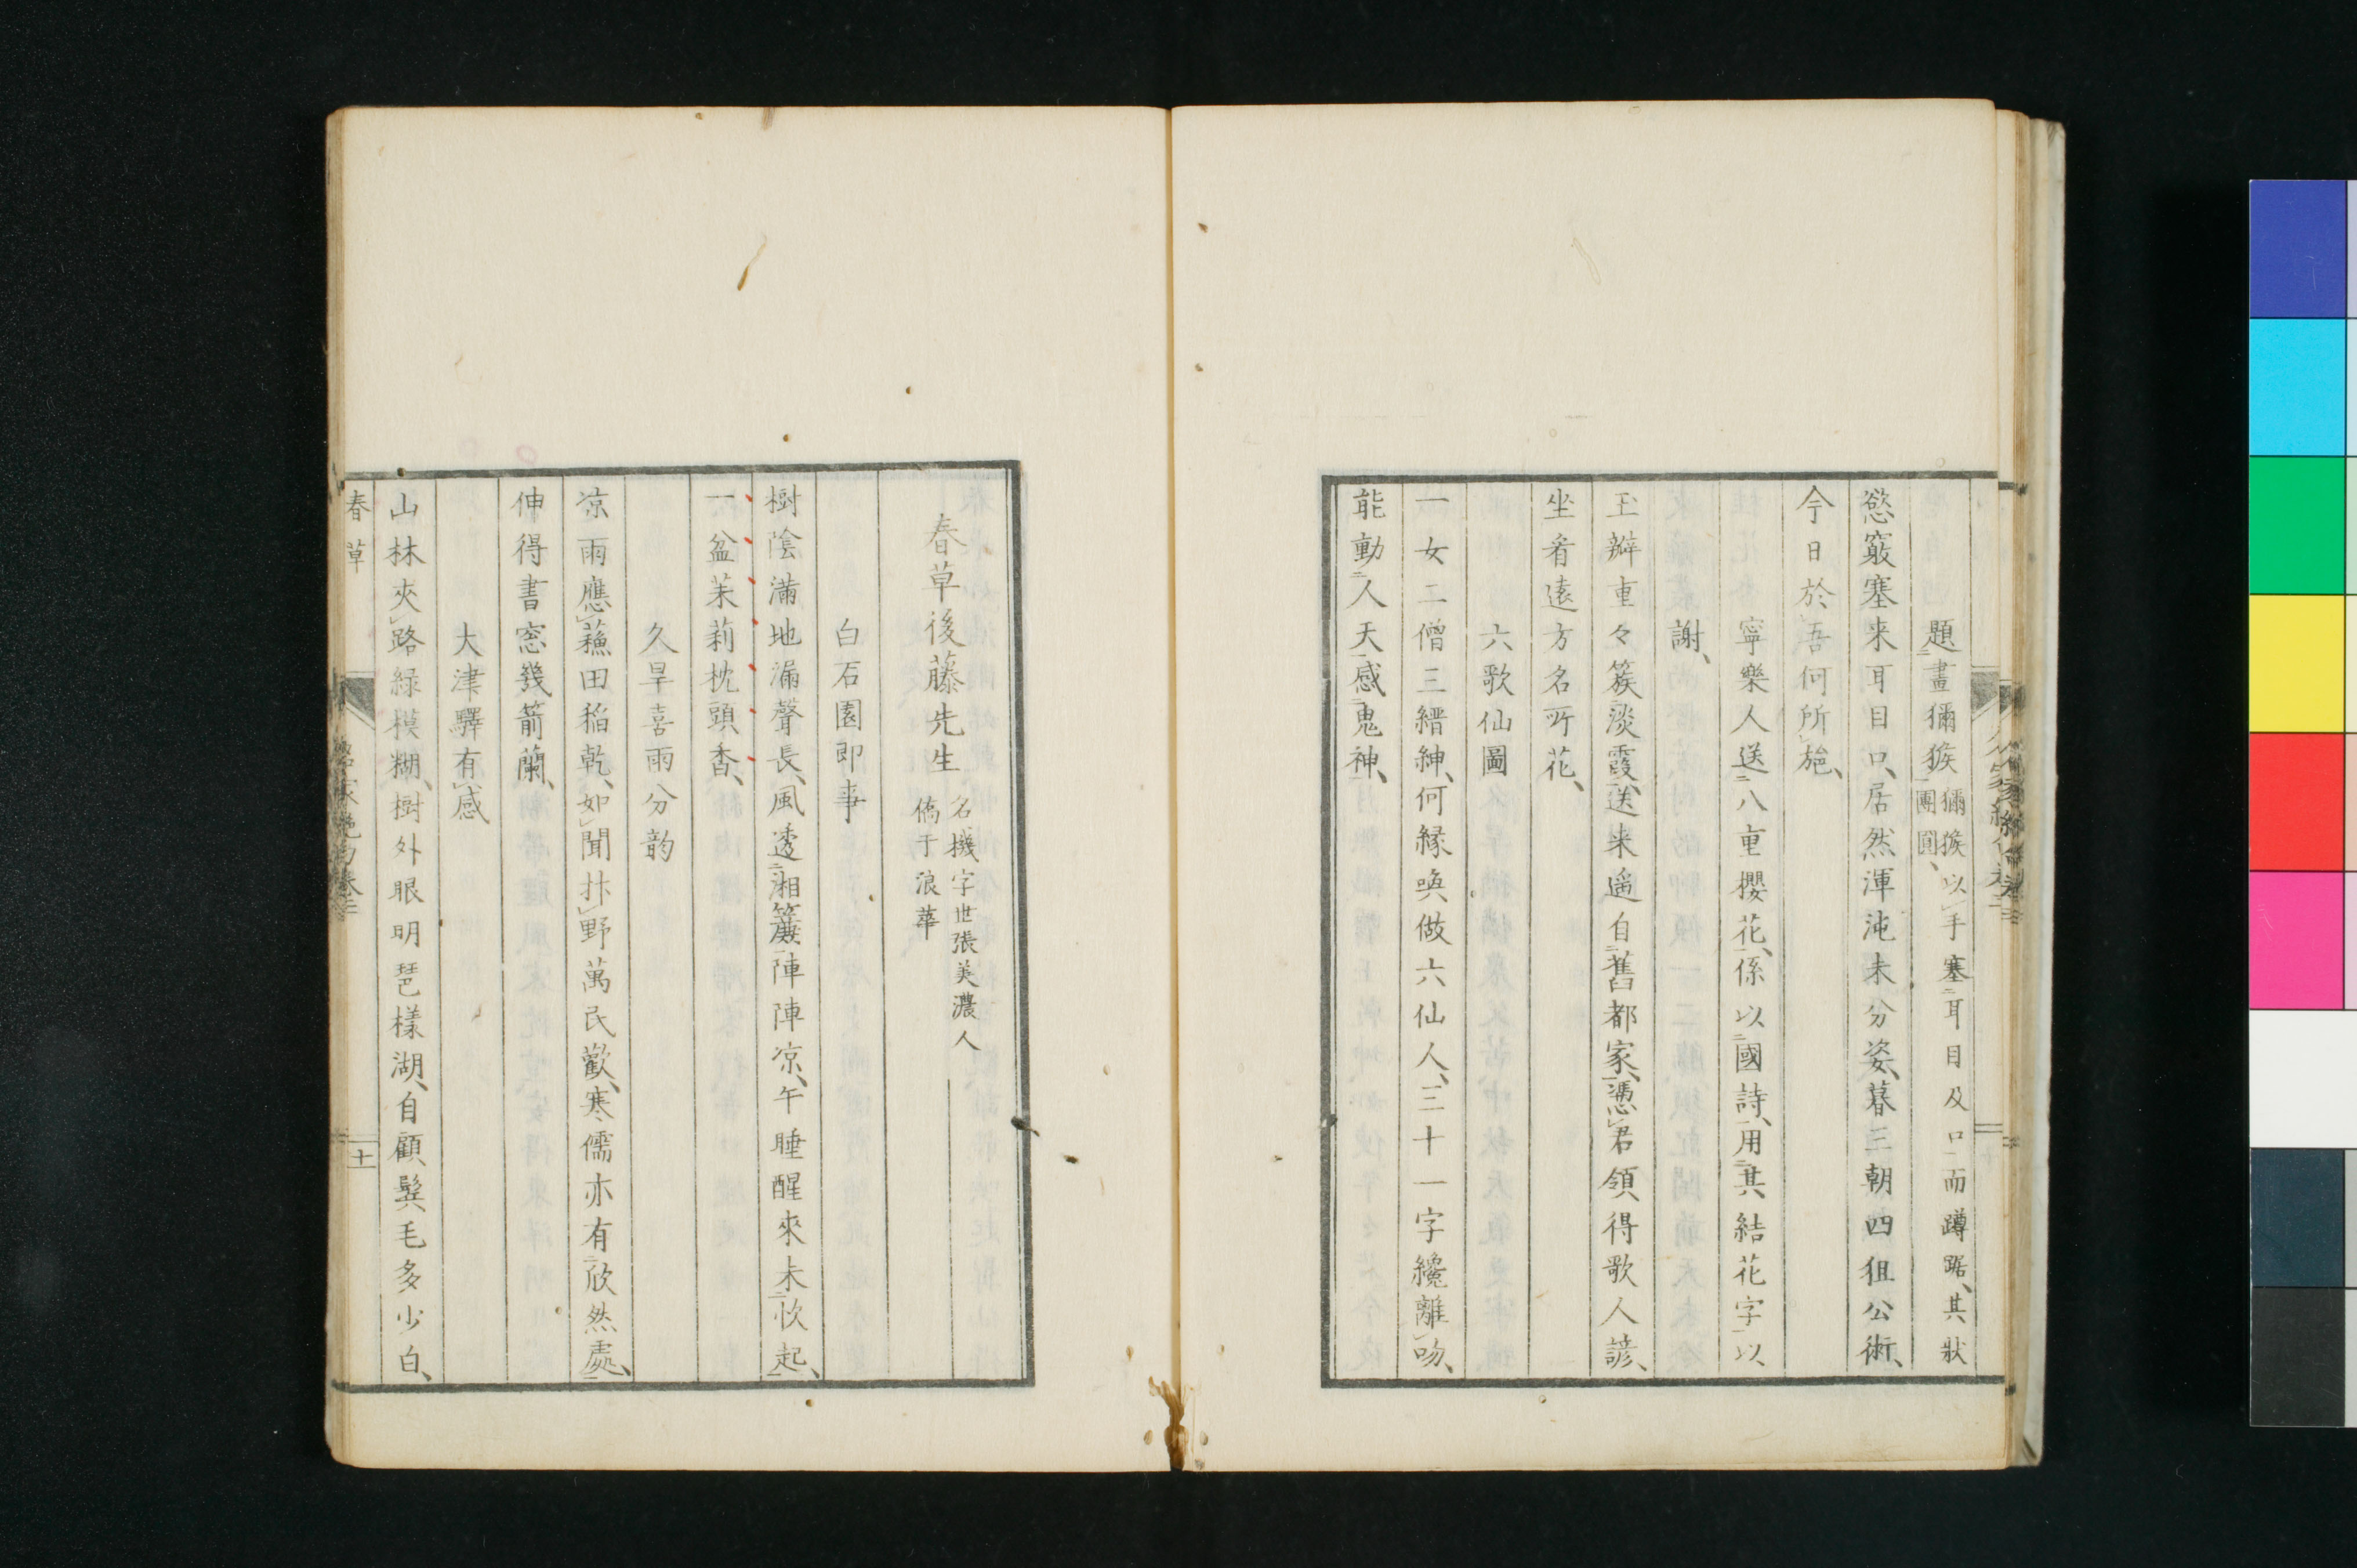 題畫獮猴獮猴以手塞耳目及口而蹲踞、其狀
團圓、
慾竅塞来耳目口、居然渾沌未分姿、暮三朝四狙公術、
今日於吾何所施、
寧樂人送八重櫻花、係以國詩、用其結花字以
謝、
玉瓣重々簇淡霞、送来遥自舊都家、憑君領得歌人諺、
坐看遠方名所花、
六歌仙圖
一女二僧三縉紳、何縁喚做六仙人、三十一字纔離吻、
能動人天感鬼神、
春草後藤先生
名機字世張美濃人
僑于浪華
白石園即事
樹陰滿地漏聲長、風透湘簾陣陣凉、午睡醒來未忺起、
一盆茉莉枕頭香、
久旱喜雨分韵
凉雨應蘓田稲乾、如聞抃野萬民歡、寒儒亦有欣然處、
伸得書窓幾箭蘭、
大津驛有感
山林夾路緑模糊、樹外眼明琶樣湖、自顧鬓毛多少白、
春草
十